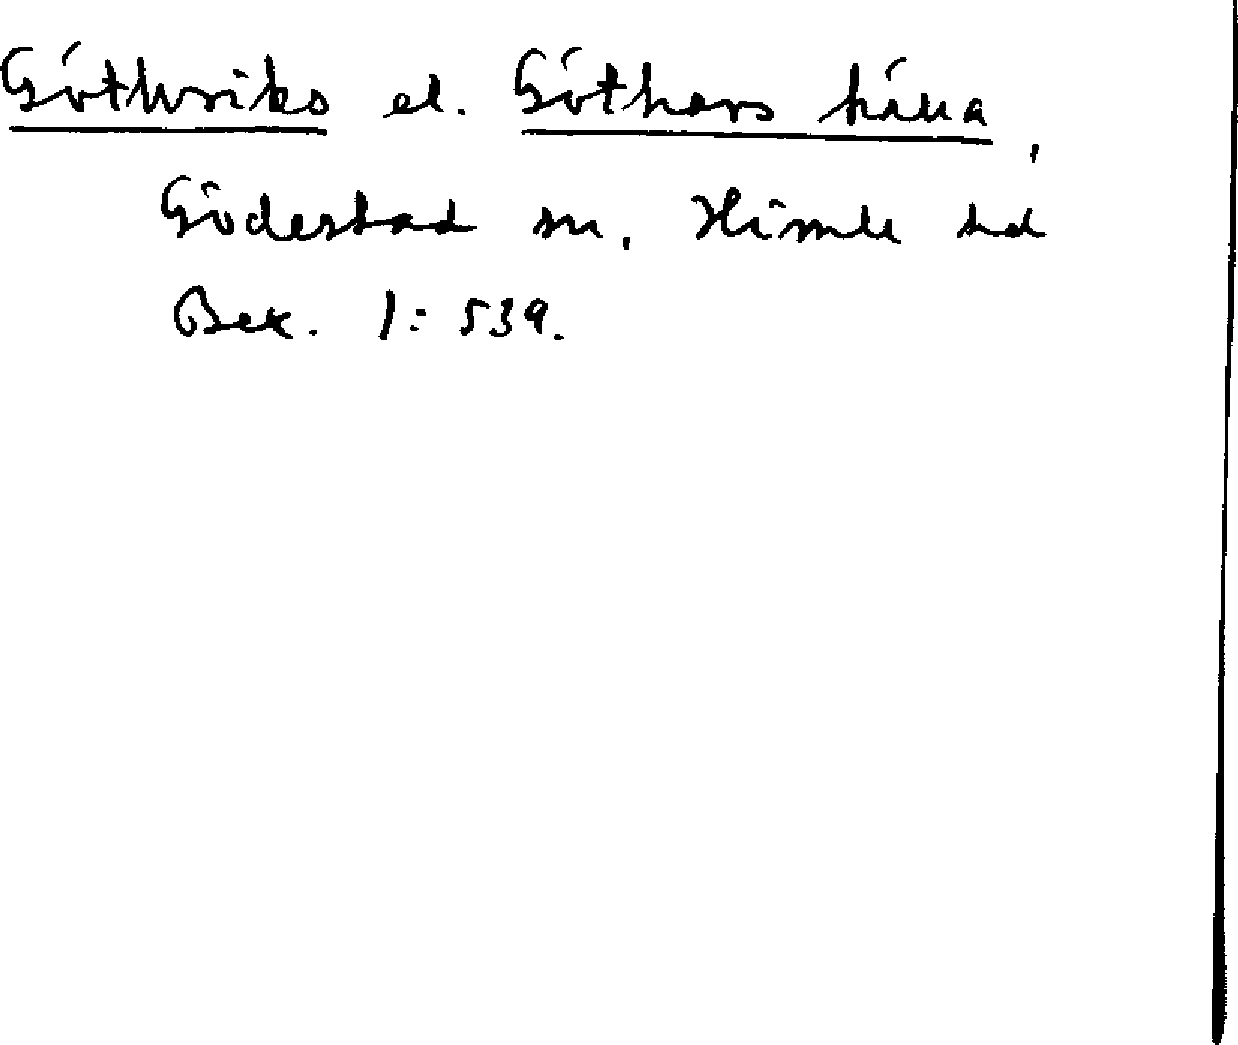 Göthriks el. Göthars häll,
Gödestad sn, Himle hd
Bex. 1: 539.